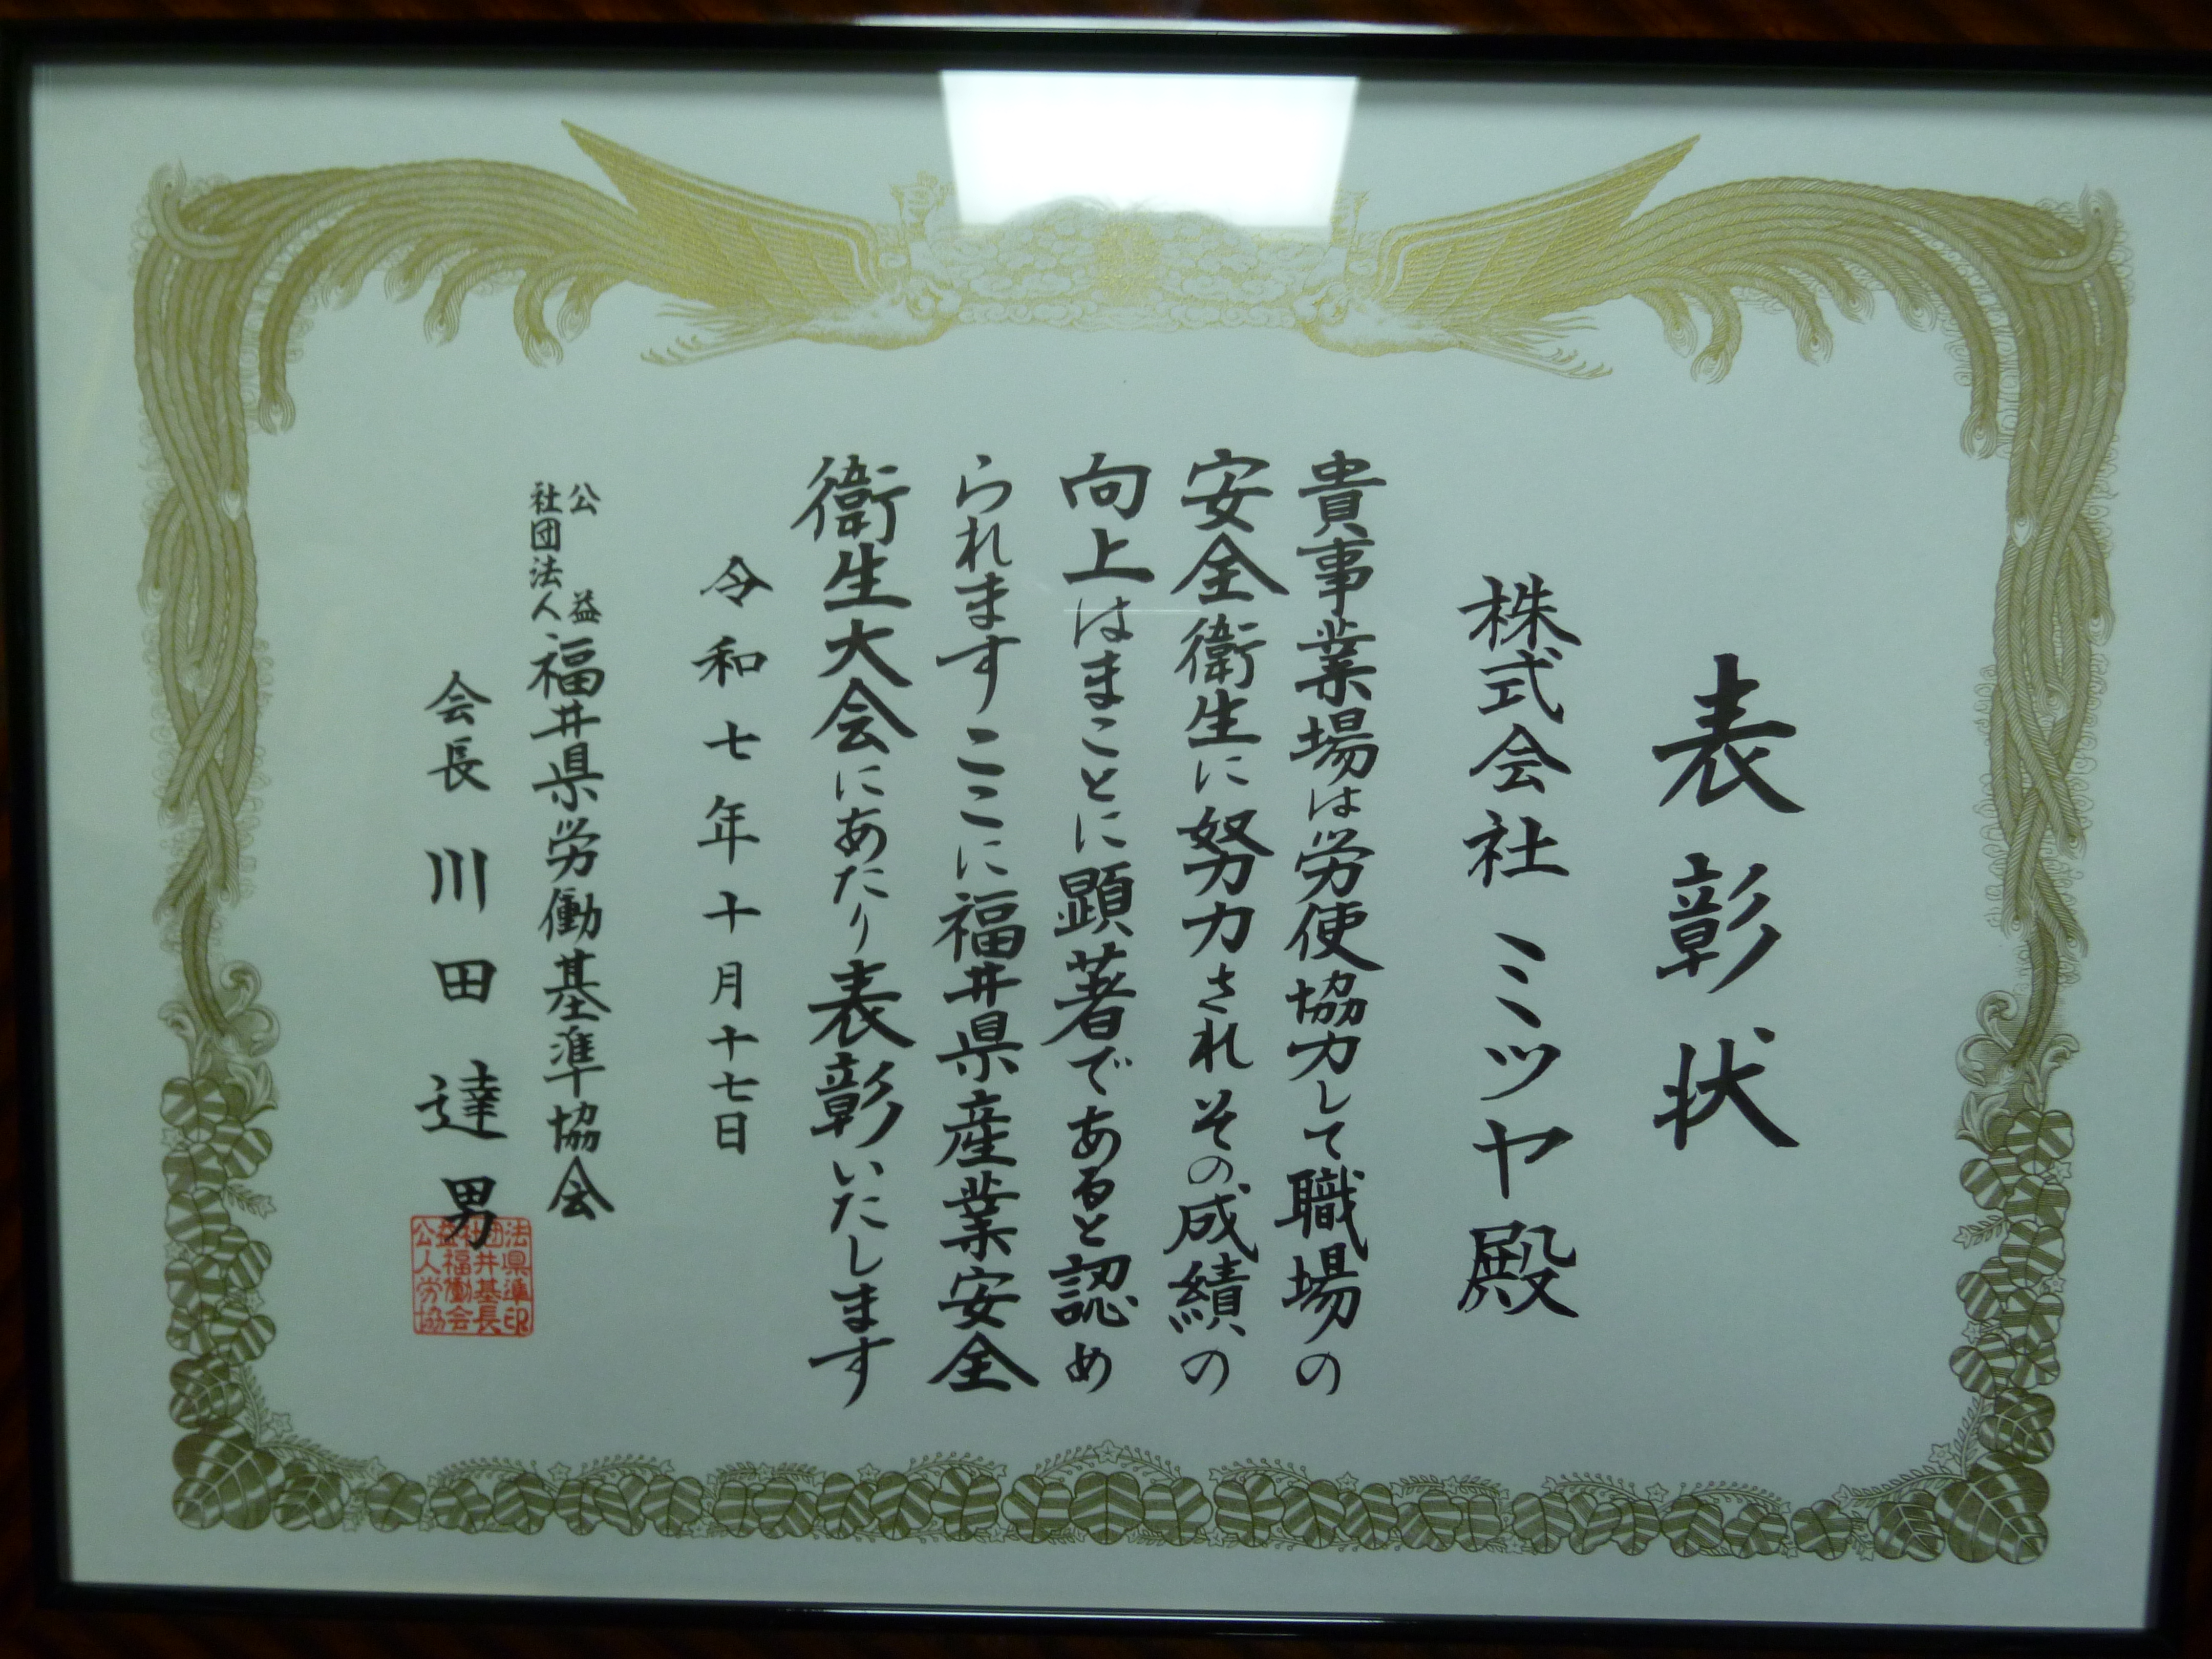 表彰状
株式会社ミツヤ殿
貴事業場は労使協力して職場の
安全衛生に努力されその成績の
向上はまことに顕著であると認め
られますここに福井県産業安全
衛生大会にあたり表彰いたします
令和七年十月十七日
公益社団法人福井県労働基準協会
会長川田達男
公益社団法
人福井県
労働基準
協会長印